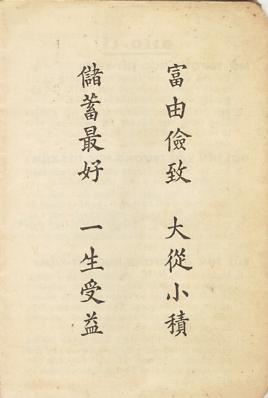 富由儉致 大從小積
儲蓄最好 一生受益